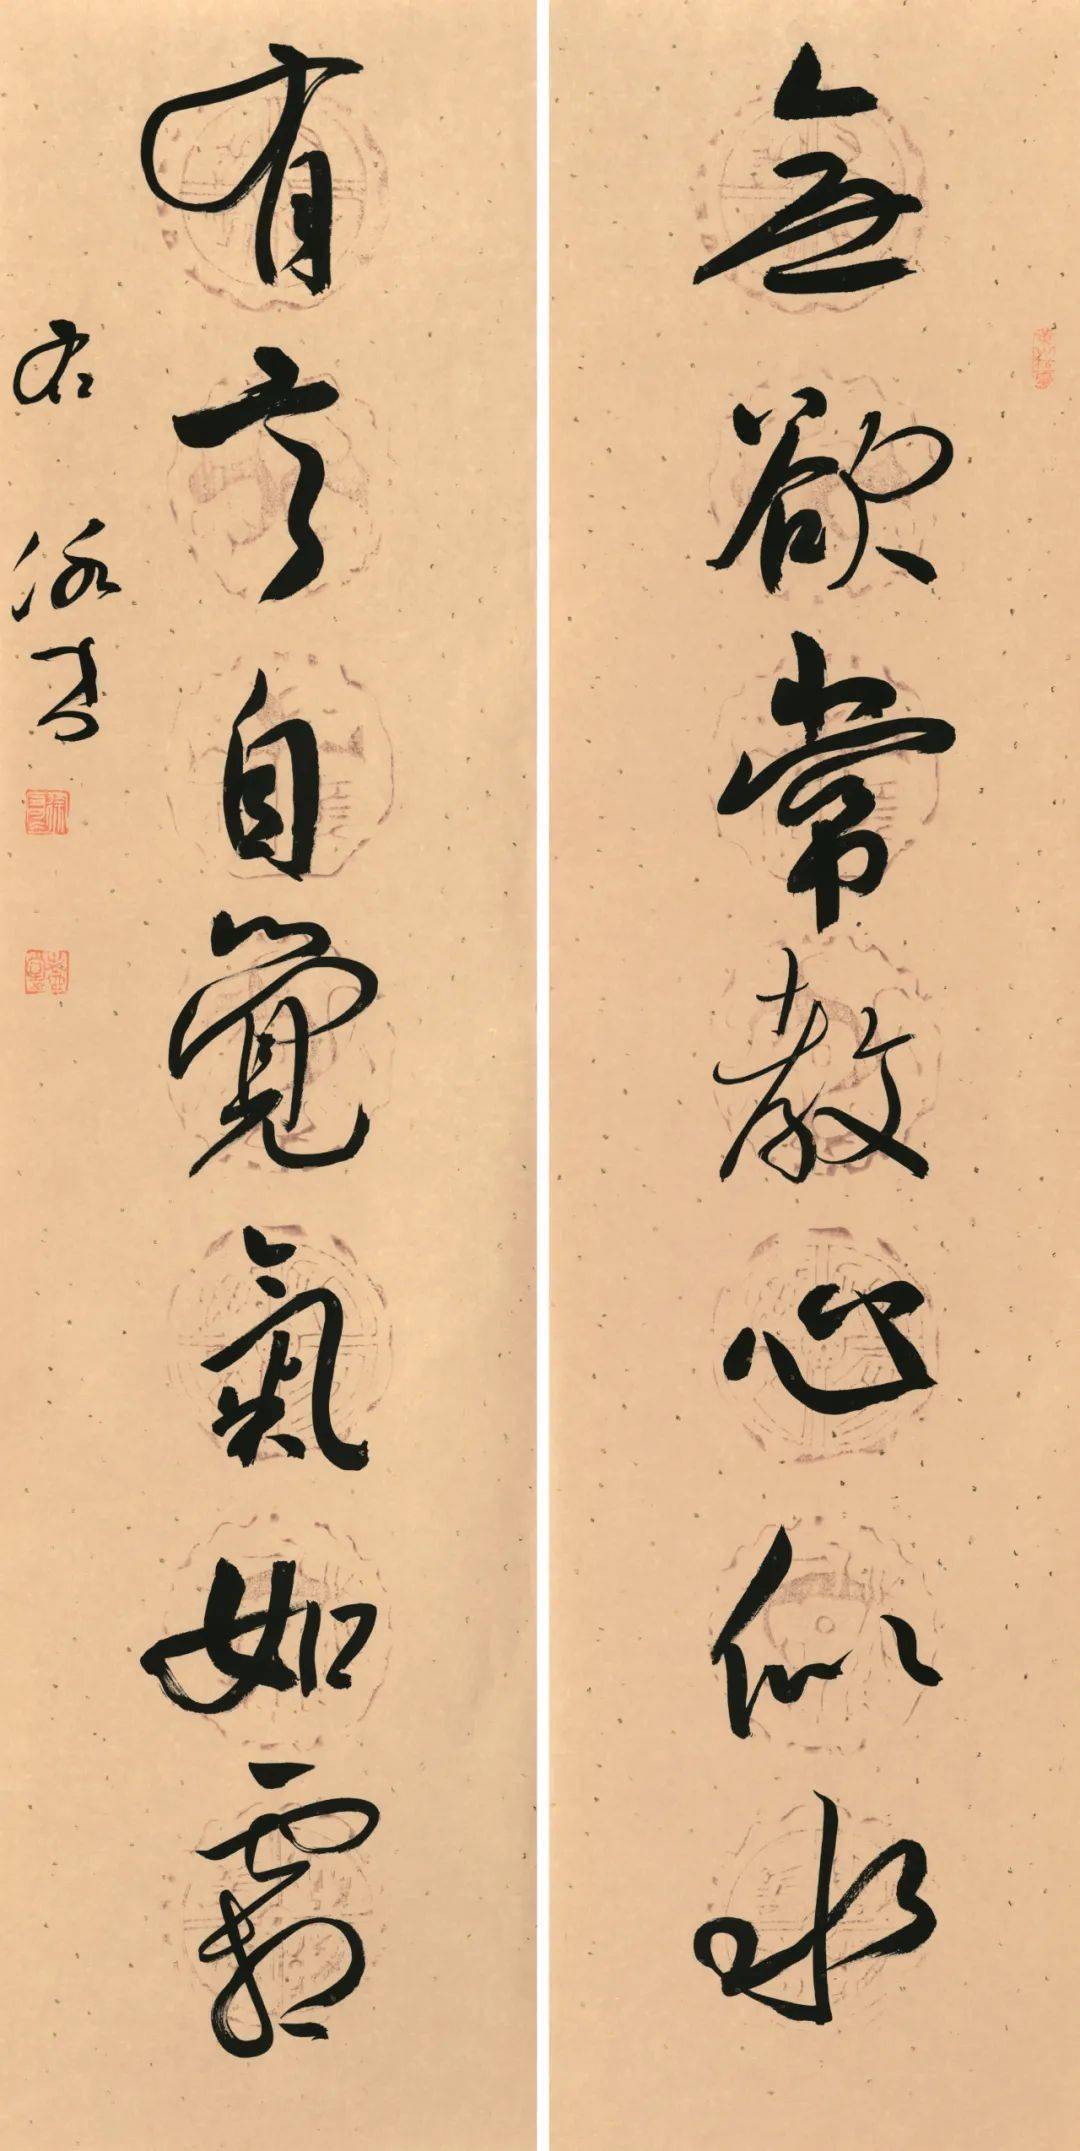 無欲常教心似水
有言自覺氣如霜
書